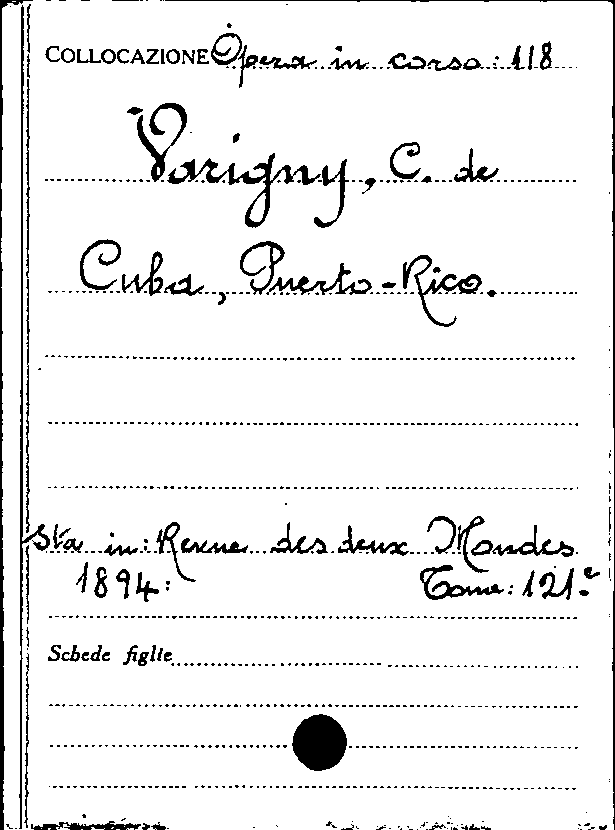 COLLOCAZIONE Opera in corso: 118
Varigny, C. de
Cuba, Puerto-Rico.
Sta in: Revue des deux Mondes
1894: Tome: 121.e
Schede figlie